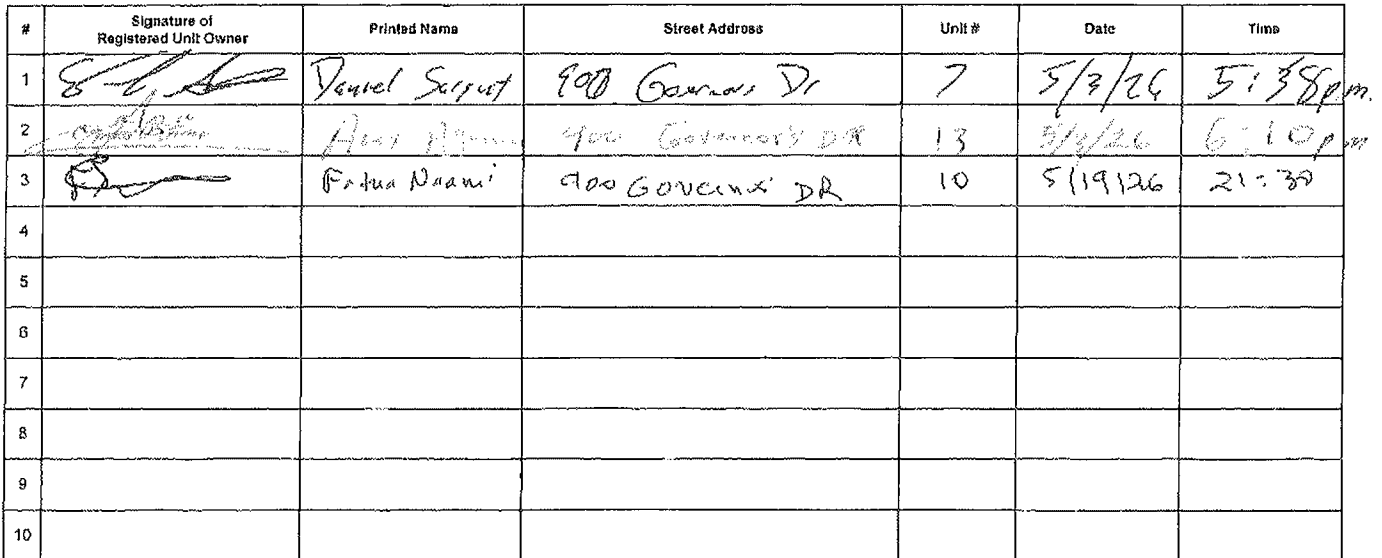 # Signature of Registered Unit Owner Printed Name Street Address Unit # Date Time
1 Daniel Sargent 900 Governors Dr 7 5/3/26 5:38 p.m.
2 900 Governor's DR 13 5/3/26 6:10 pm
3 Fadua Naami 900 Governors DR 10 5/19/26 21:30
4
5
6
7
8
9
10